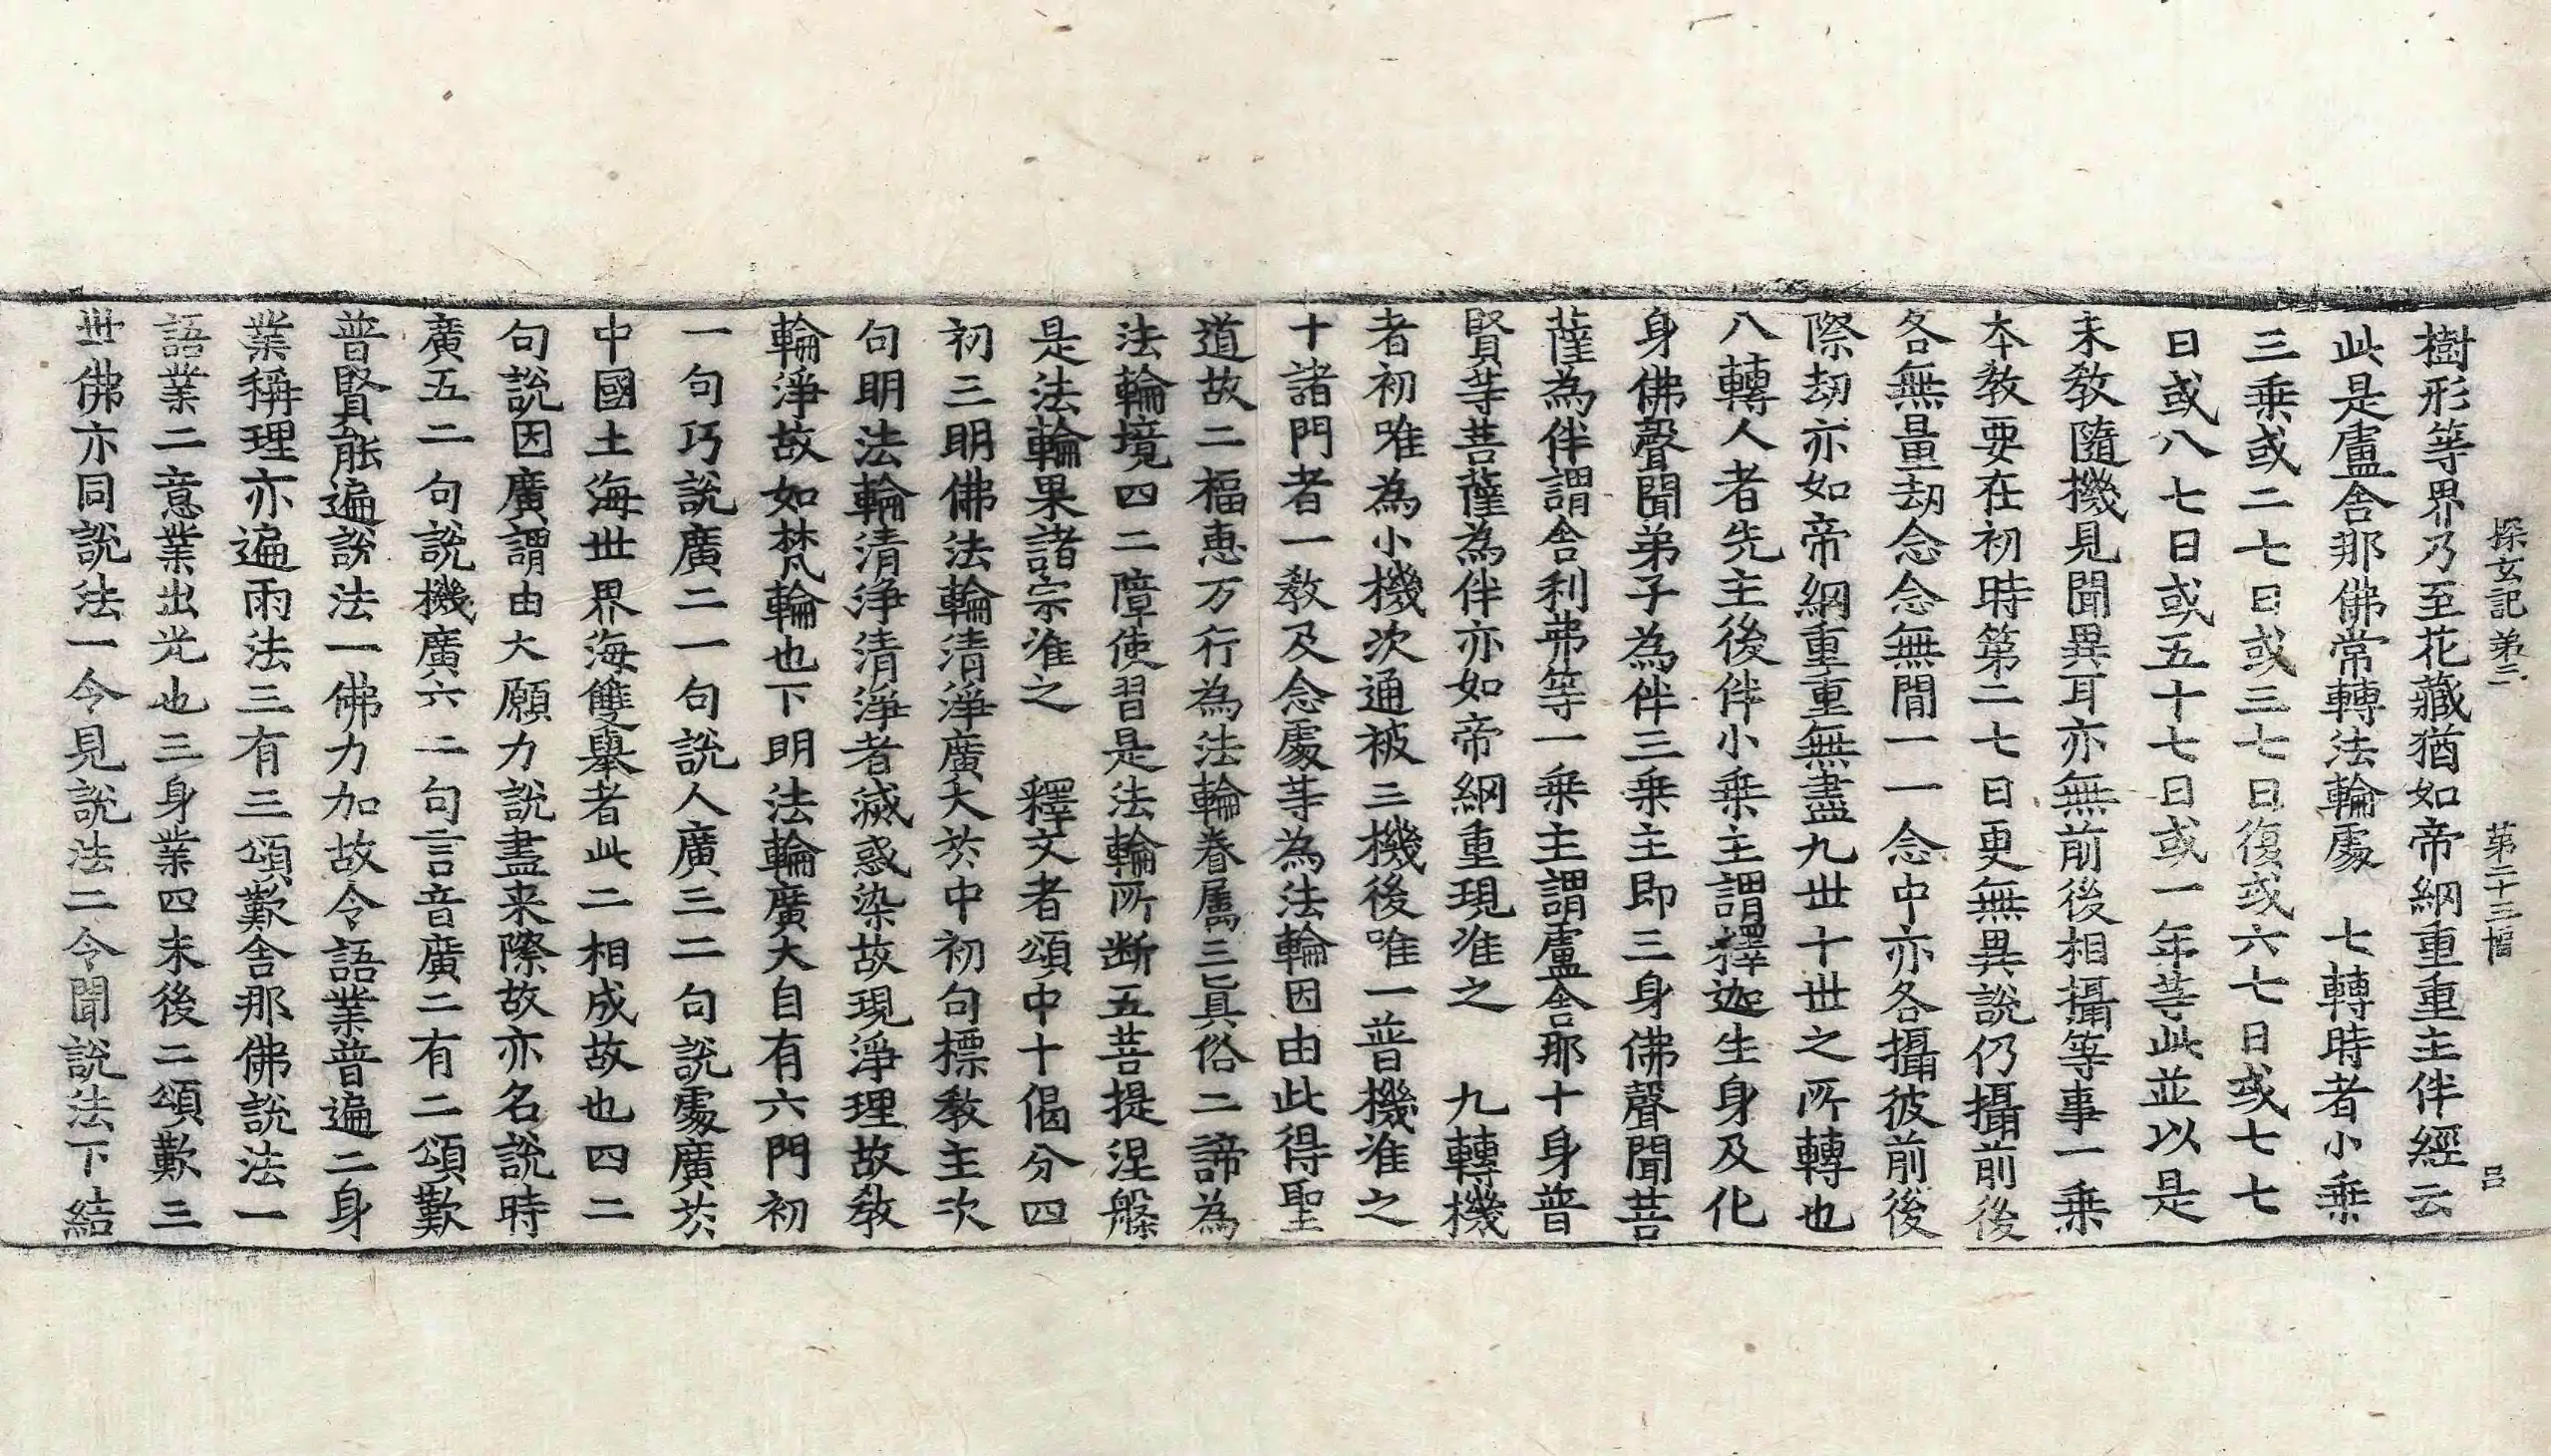 探玄記第三 第二十三幅 呂
樹形等界乃至花藏猶如帝網重重主伴經云
此是盧舍那佛常轉法輪處 七轉時者小乘
三乘或二七日或三七日復或六七日或七七
日或八七日或五十七日或一年等此並以是
末教隨機見聞異耳亦無前後相攝等事一乘
本教要在初時第二七日更無異說仍攝前後
各無量劫念念無間一一念中亦各攝彼前後
際劫亦如帝網重重無盡九世十世之所轉也
八轉人者先主後伴小乘主謂釋迦生身及化
身佛聲聞弟子為伴三乘主即三身佛聲聞菩
薩為伴謂舍利弗等一乘主謂盧舍那十身普
賢等菩薩為伴亦如帝網重現准之 九轉機
者初唯為小機次通被三機後唯一普機准之
十諸門者一教及念處等為法輪因由此得聖
道故二福惠万行為法輪眷屬三真俗二諦為
法輪境四二障使習是法輪所断五菩提涅槃
是法輪果諸宗准之 釋文者頌中十偈分四
初三明佛法輪清淨廣大於中初句標教主次
句明法輪清淨清淨者滅惑染故現淨理故教
輪淨故如梵輪也下明法輪廣大自有六門初
一句巧說廣二一句說人廣三二句說處廣於
中國土海世界海雙舉者此二相成故也四二
句說因廣謂由大願力說盡来際故亦名說時
廣五二句說機廣六二句言音廣二有二頌歎
普賢能遍說法一佛力加故令語業普遍二身
業稱理亦遍雨法三有三頌歎舍那佛說法一
語業二意業出光也三身業四末後二頌歎三
世佛亦同說法一令見說法二令聞說法下結